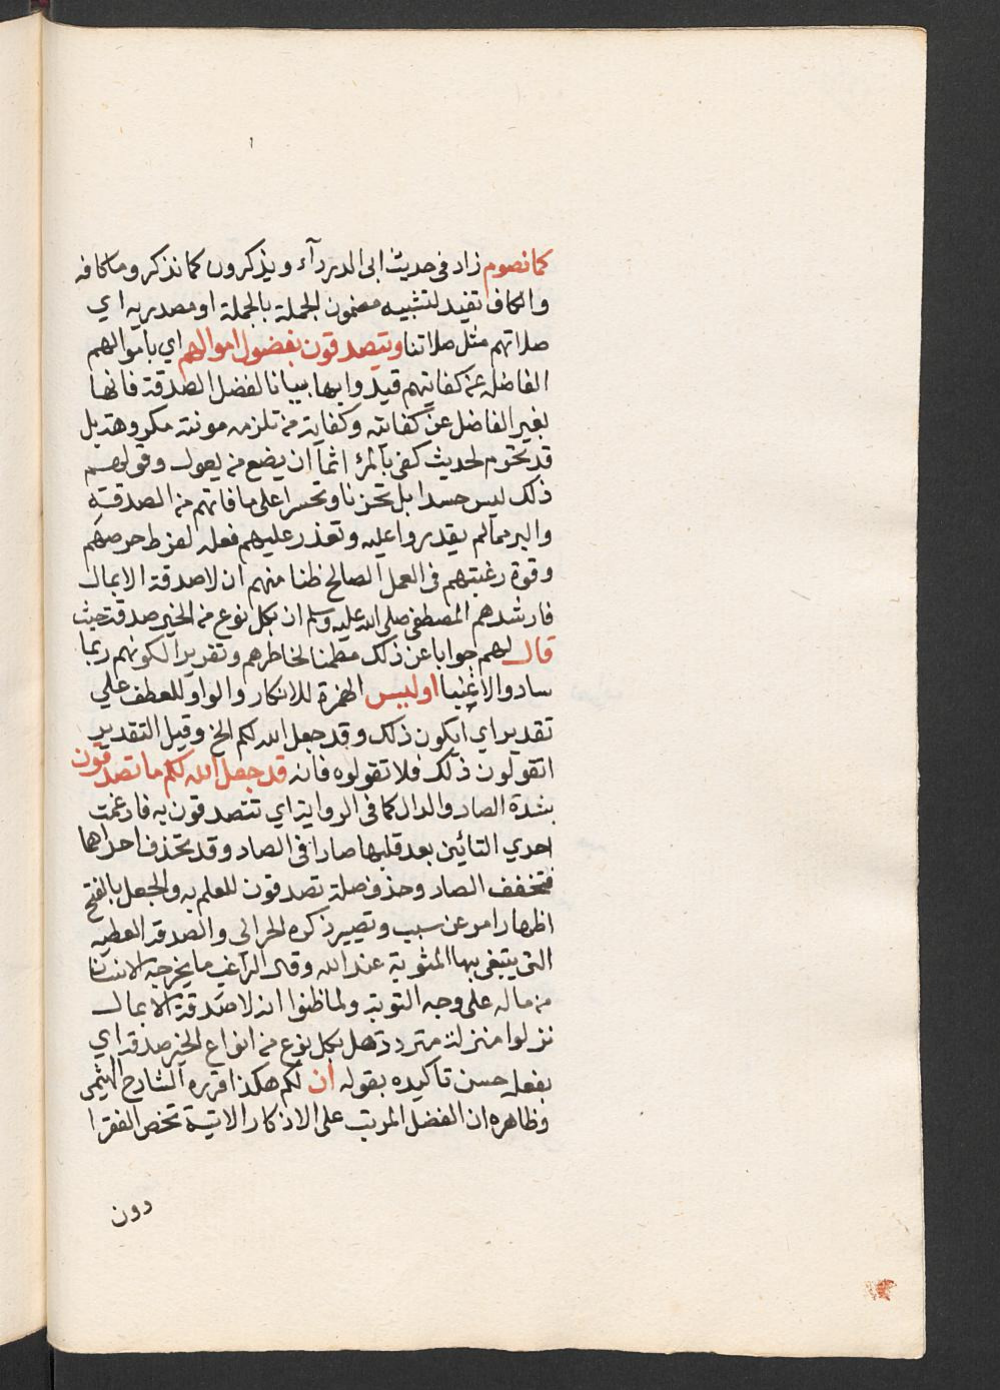 كما نصوم زاد في حديث ابى الدردآء ويذكرون كما نذكر وما كافه
والكاف تفيد لتشبيه مضمون الجملة بالجملة او مصدريه اي
صلاتهم مثل صلاتنا ويتصدقون بفضول اموالهم اي باموالهم
الفاضل عن كفايتهم قيدوا بها بيانا لفضل الصدقة فانها
بغير الفاضل عن كفايته وكفاية من تلزمه مونته مكروهة بل
قد تحرم لحديث كفى بالمرء اثما ان يضع من يعول وقولهم
ذلك ليس حسدا بل تحزنا وتحسرا على ما فاتهم من الصدقة
والبر مما لم يقدروا عليه وتعذر عليهم فعله لفرط حرصهم
وقوة رغبتهم فى العمل الصالح ظنا منهم ان لا صدقة الا بمال
فارشدهم المصطفى صلى الله عليه وسلم ان بكل نوع من الخير صدقة حيث
قال لهم جوابا عن ذلك مطمنا لخاطرهم وتقريرا لكونهم ربما
سادوا الاغنيا اوليس الهمزة للانكار والواو للعطف على
تقدير اي ايكون ذلك وقد جعل الله لكم الخ وقيل التقدير
اتقولون ذلك فلا تقولوه فانه قد جعل الله لكم ما تصدقون
بشدة الصاد والدال كما في الرواية اي تتصدقون به فادغمت
احدي التائين بعد قلبها صادا فى الصاد وقد تحذف احداها
فتخفف الصاد وحذف صلة تصدقون للعلم به والجعل بالفتح
اظهار امر عن سبب وتصيير ذكره الحرالى والصدقة العطيه
التى يبتغى بها المثوبة عند الله وقال الراغب ما يخرجه الانسان
من ماله على وجه التوبة ولما ظنوا انه لا صدقة الا بمال
نزلوا منزلة متردد هل بكل نوع من انواع الخير صدقة اي
بفعل حسن تاكيده بقوله ان لكم هكذا قرره الشارح الهيثمى
وظاهره ان الفضل المرتب على الاذكار الاتية تخص الفقرا
دون